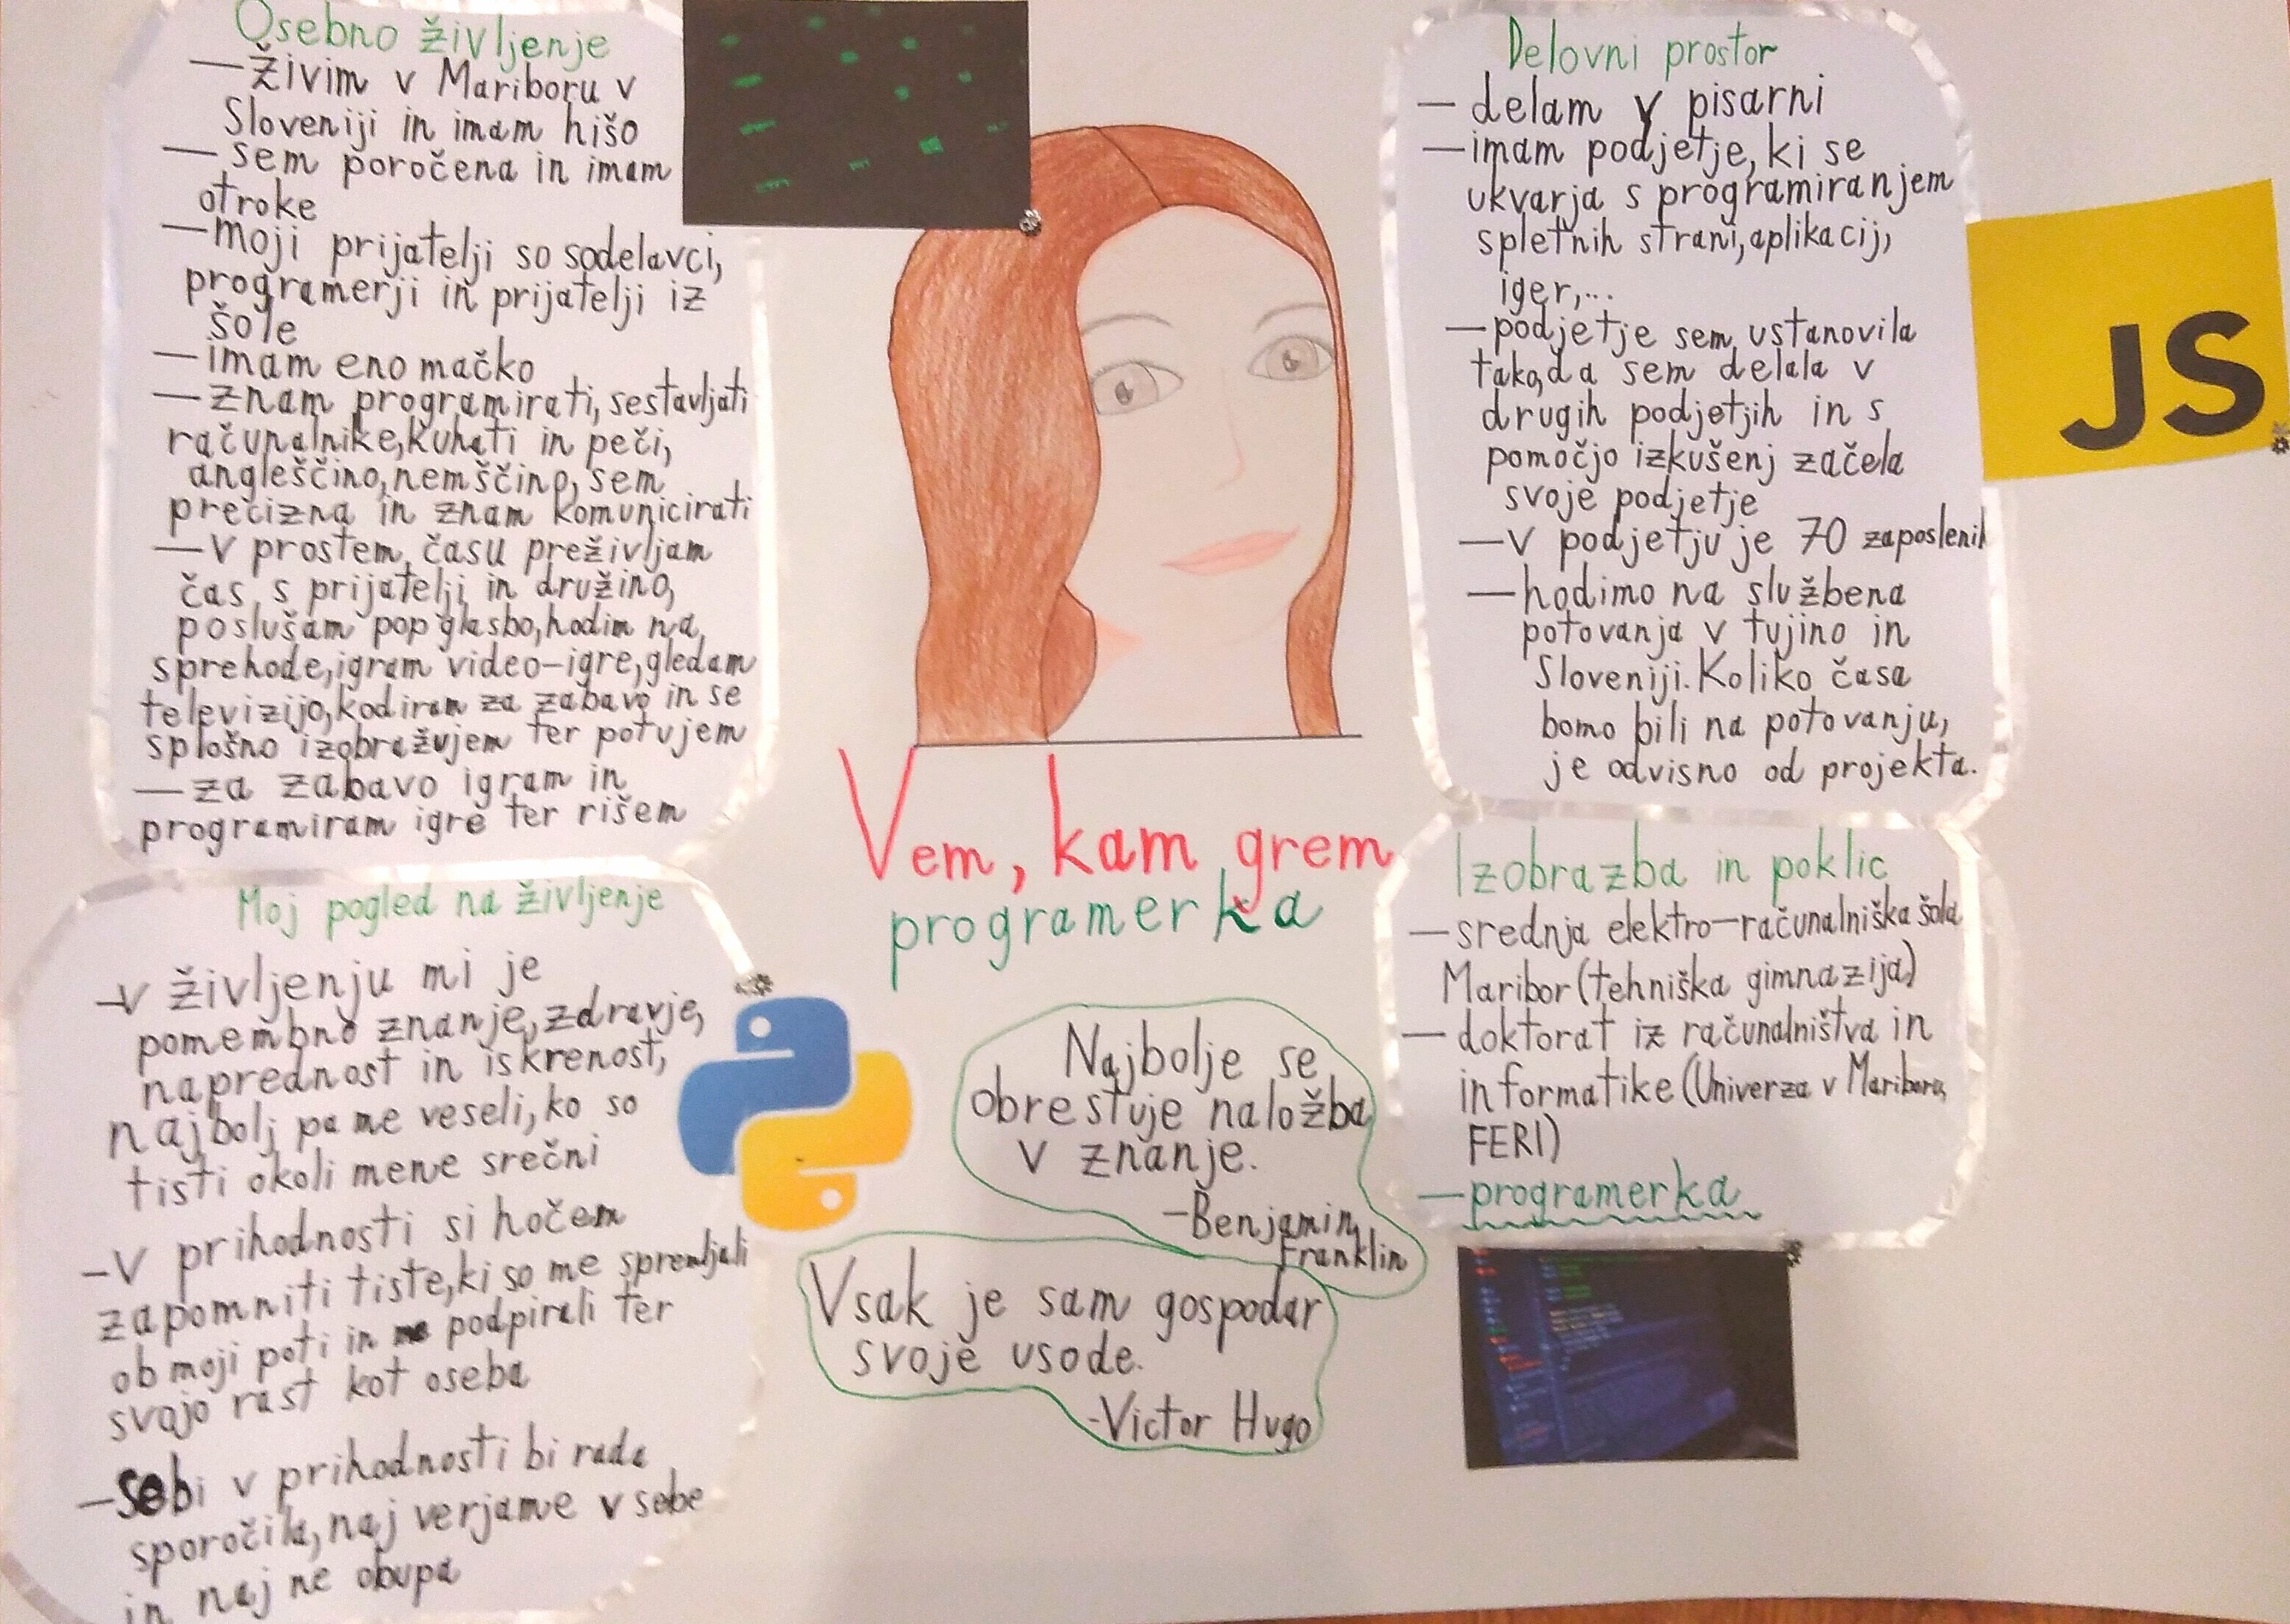 Osebno življenje
— živim v Mariboru v
Sloveniji in imam hišo
— sem poročena in imam
otroke
— moji prijatelji so sodelavci,
programerji in prijatelji iz
šole
— imam eno mačko
— znam programirati, sestavljati
računalnike, kuhati in peči,
angleščino, nemščino, sem
precizna in znam komunicirati
— v prostem času preživljam
čas s prijatelji in družino,
poslušam pop glasbo, hodim na
sprehode, igram video-igre, gledam
televizijo, kodiram za zabavo in se
splošno izobražujem ter potujem
— za zabavo igram in
programiram igre ter rišem
Moj pogled na življenje
— v življenju mi je
pomembno znanje, zdravje,
naprednost in iskrenost,
najbolj pa me veseli, ko so
tisti okoli mene srečni
— v prihodnosti si hočem
zapomniti tiste, ki so me spremljali
ob moji poti in podpirali ter
svojo rast kot oseba
— sebi v prihodnosti bi rada
sporočila, naj verjame v sebe
in naj ne obupa
Vem, kam grem
programerka
Najbolje se
obrestuje naložba
v znanje.
-Benjamin
Franklin
Vsak je sam gospodar
svoje usode.
-Victor Hugo
Delovni prostor
— delam v pisarni
— imam podjetje, ki se
ukvarja s programiranjem
spletnih strani, aplikacij,
iger,...
— podjetje sem ustanovila
tako, da sem delala v
drugih podjetjih in s
pomočjo izkušenj začela
svoje podjetje
— v podjetju je 70 zaposlenih
— hodimo na službena
potovanja v tujino in
Sloveniji. Koliko časa
bomo bili na potovanju,
je odvisno od projekta.
JS
Izobrazba in poklic
— srednja elektro-računalniška šola
Maribor (tehniška gimnazija)
— doktorat iz računalništva in
informatike (Univerza v Mariboru,
FERI)
— programerka